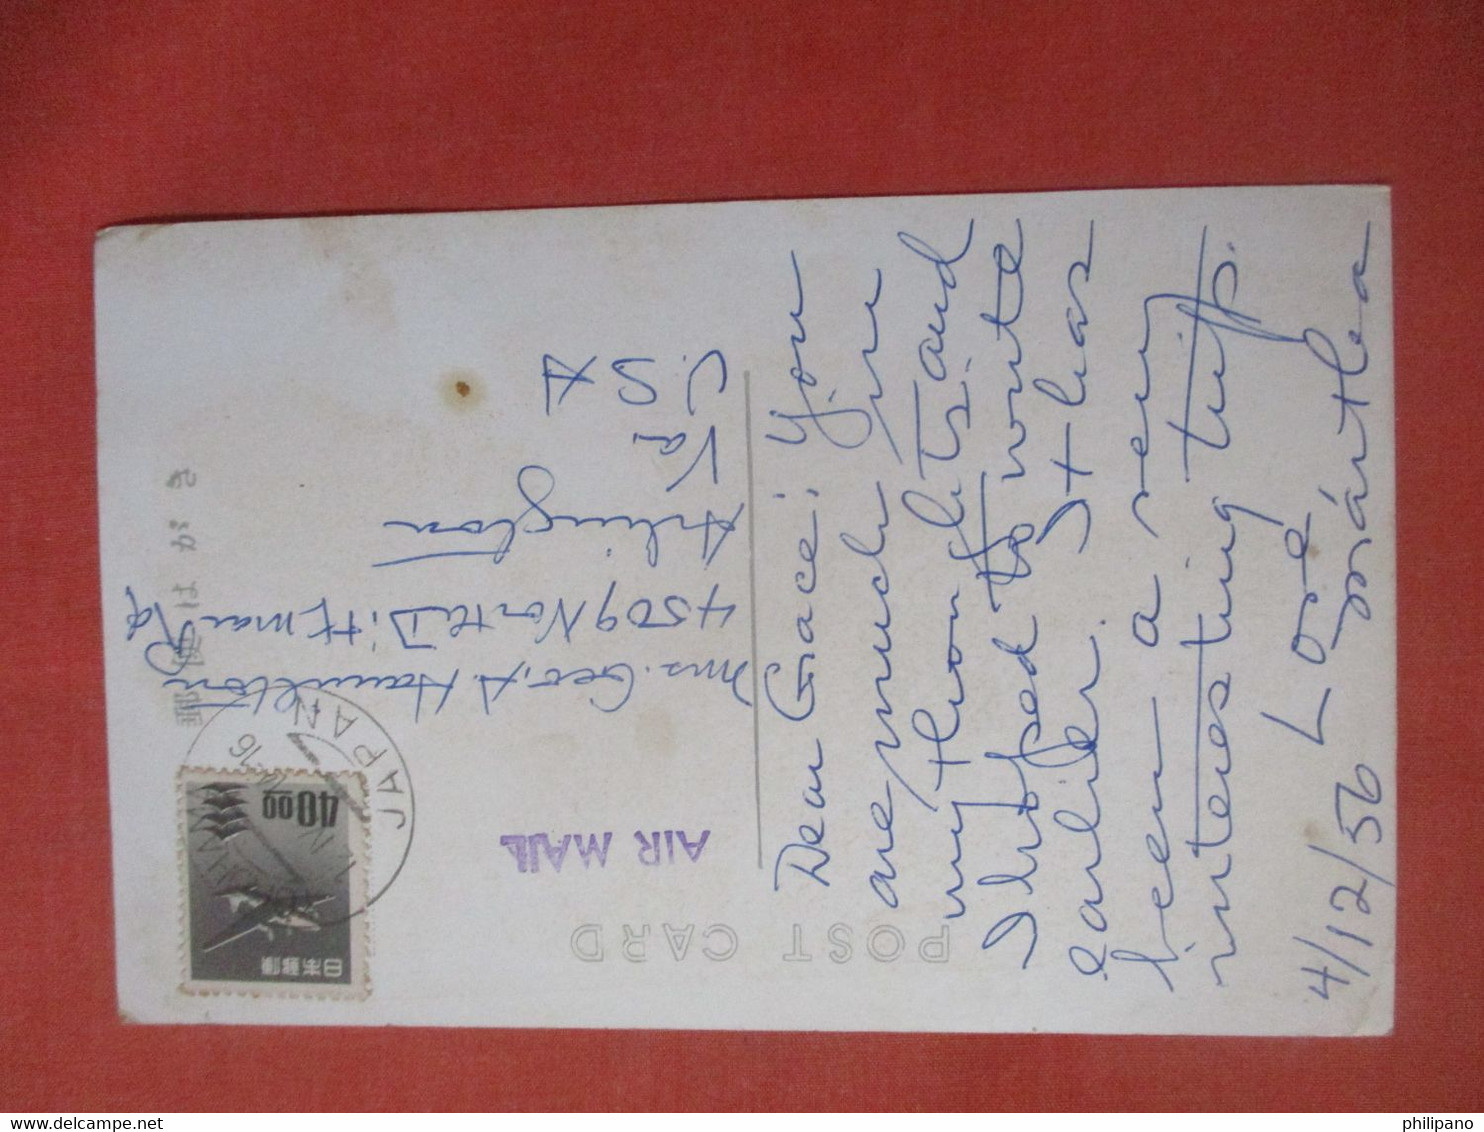 POST CARD
郵便はがき
日本郵便
40.00
JAPAN
AIR MAIL
Mrs. Geo. A Hamilton
4509 North Dittmar Rd
Arlington
Va.
U.S.A
Dear Grace: You
are much in
my thoughts and
I hoped to write
earlier. It has
been a very
interesting trip.
Love
Martha
4/12/56
philipano